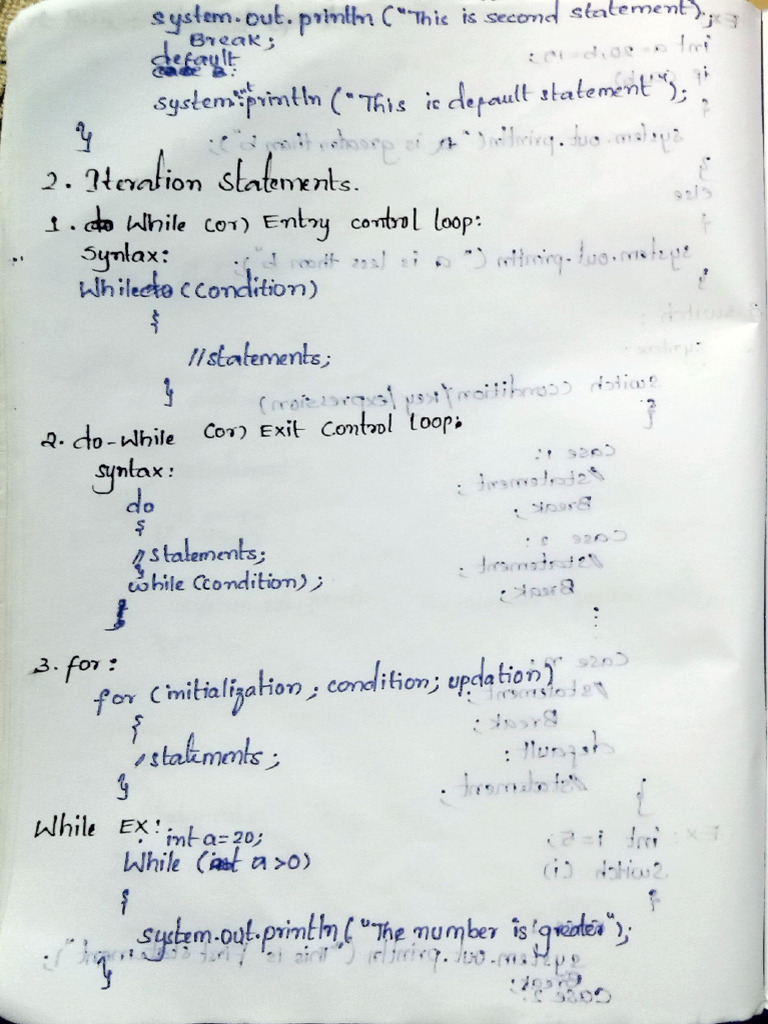 system.out.println ("This is second statement");
Break;
default
system.out.println ("This is default statement");
}
2. Iteration statements.
1. While (or) Entry control loop:
syntax:
While (condition)
{
//statements;
}
2. do-while (or) Exit control loop:
syntax:
do
{
// statements;
}
while (condition);
3. for:
for (initialization; condition; updation)
{
// statements;
}
While EX:
int a=20;
While (a>0)
{
system.out.println ("The number is greater");
}